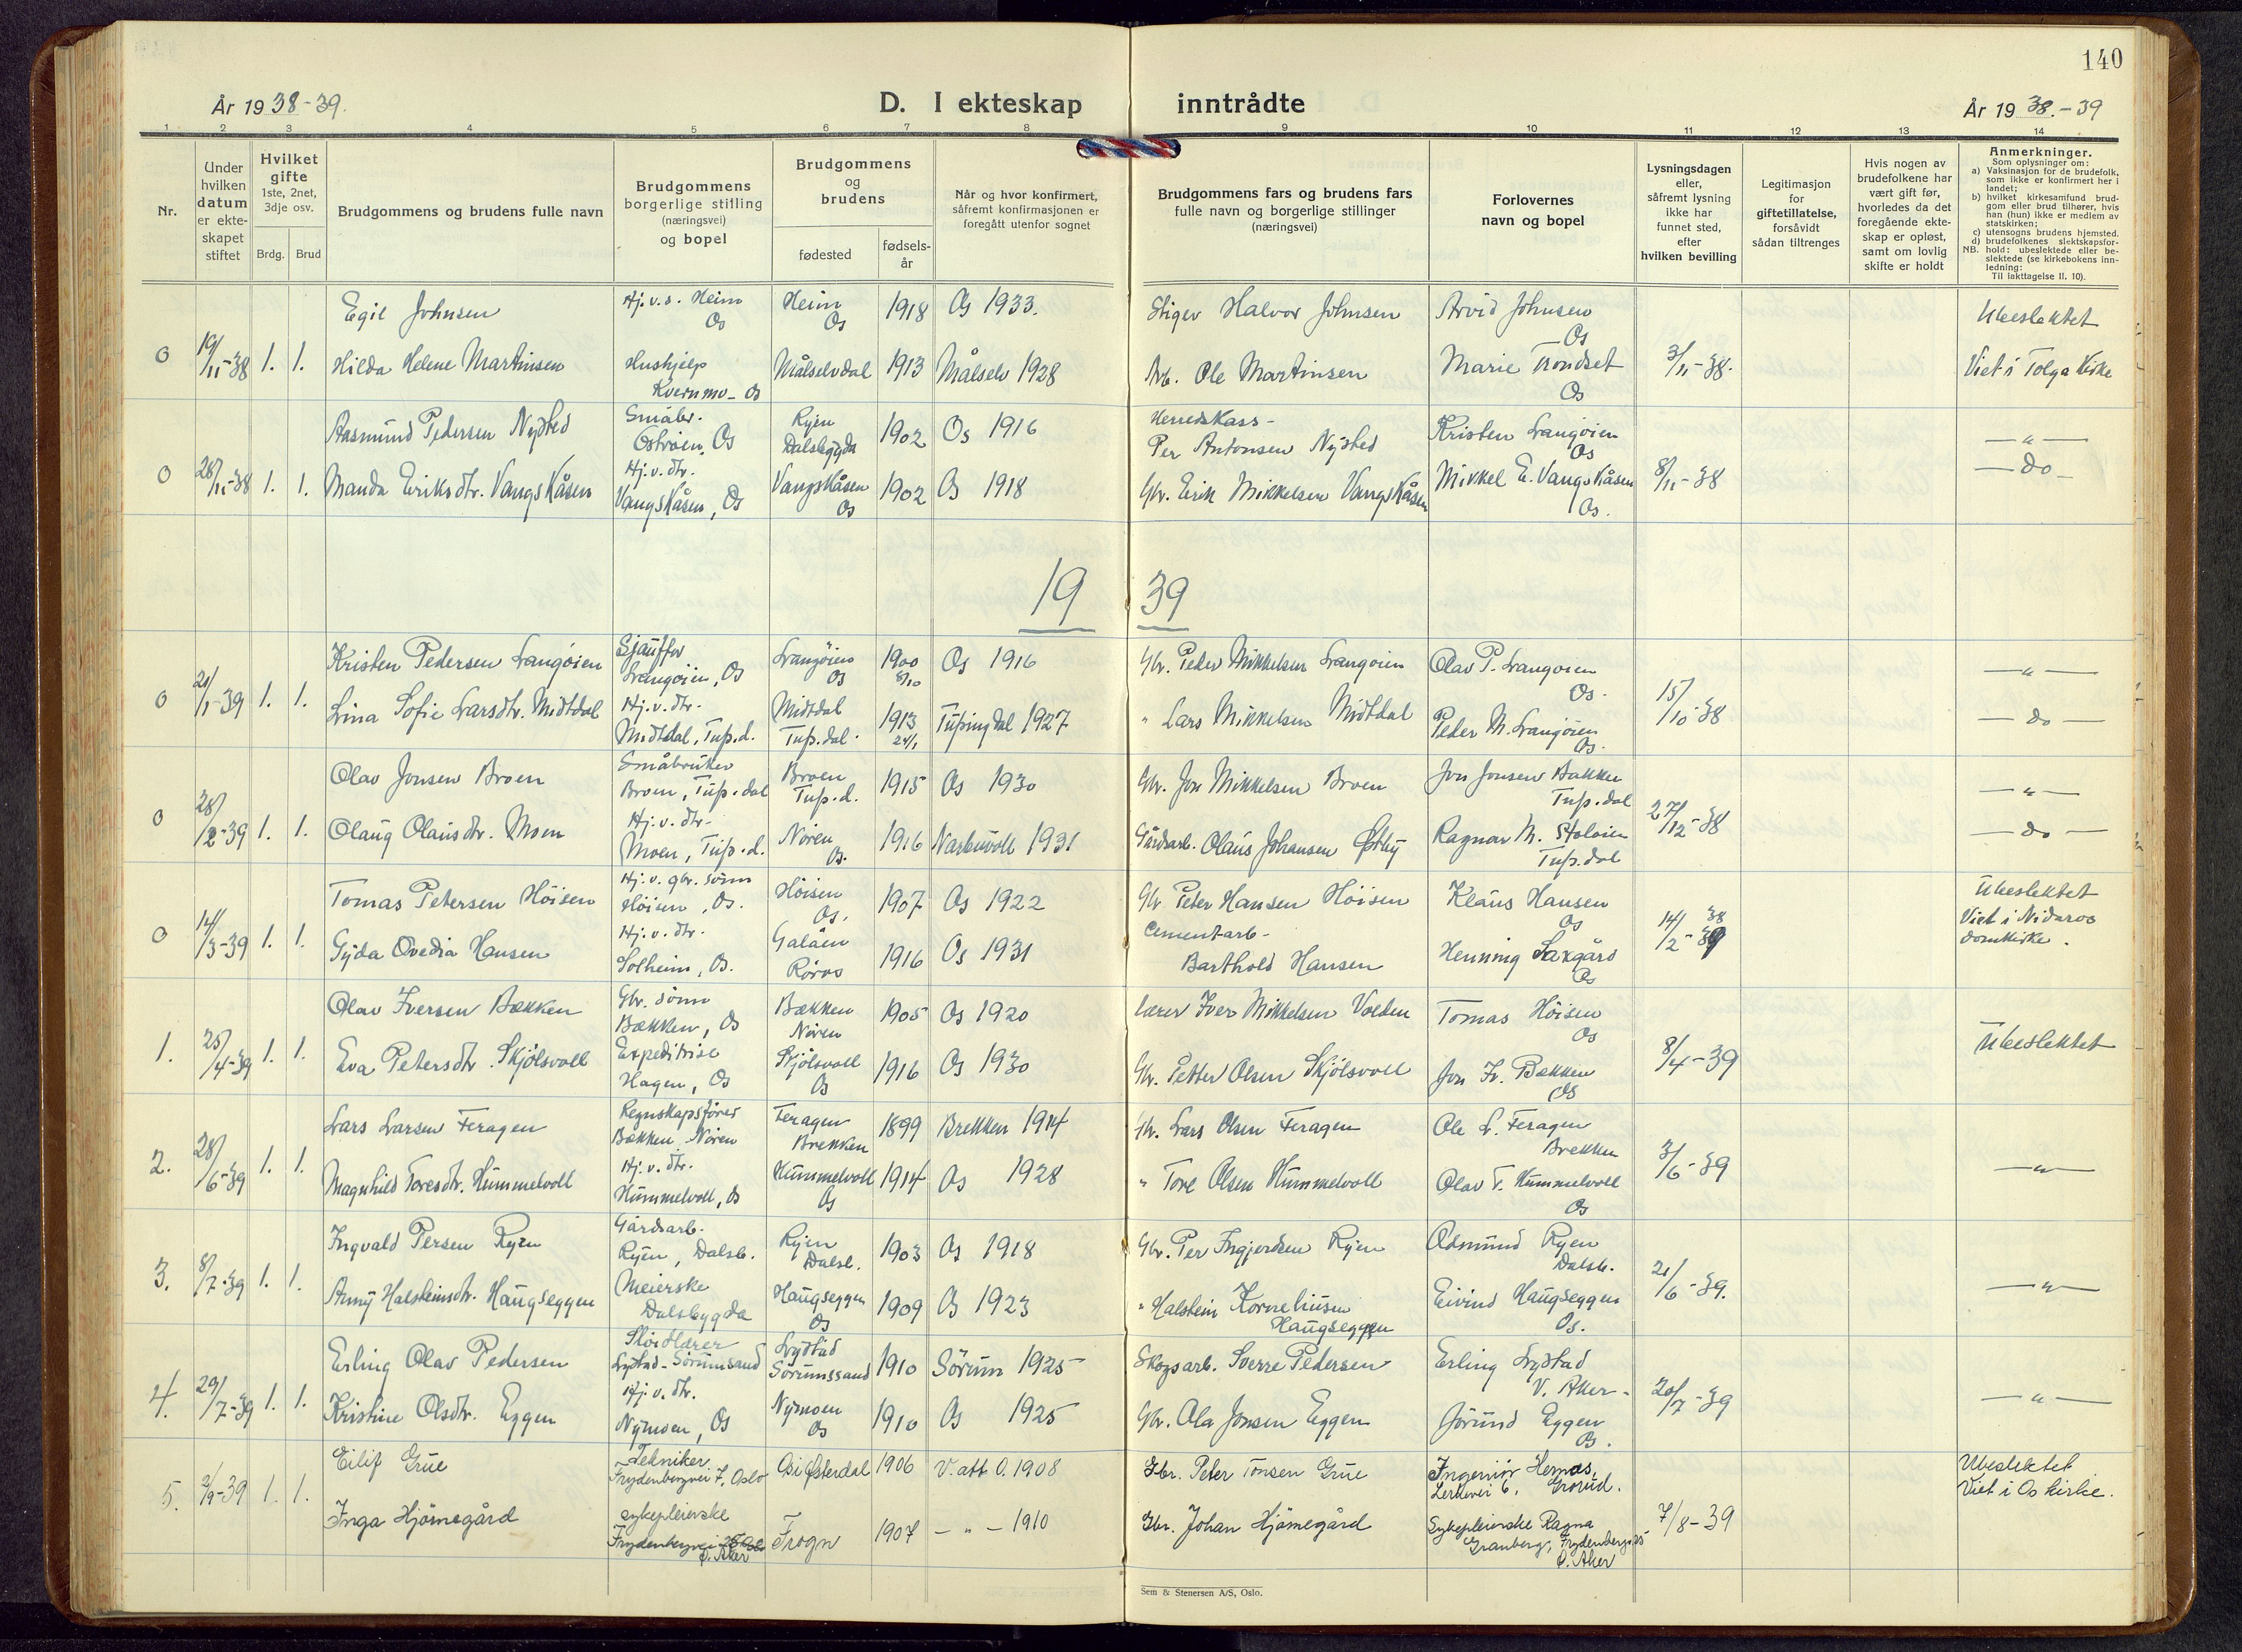 140
År 1938-39.
D. I ekteskap inntrådte
År 1938.-39
1 2 3 4 5 6 7 8 9 10 11 12 13 14
Nr.
Under hvilken datum er ekteskapet stiftet
Hvilket gifte 1ste, 2net, 3dje osv.
Brdg. Brud
Brudgommens og brudens fulle navn
Brudgommens borgerlige stilling (næringsvei) og bopel
Brudgommens og brudens
fødested
fødselsår
Når og hvor konfirmert, såfremt konfirmasjonen er foregått utenfor sognet
Brudgommens fars og brudens fars fulle navn og borgerlige stillinger (næringsvei)
Forlovernes navn og bopel
Lysningsdagen eller, såfremt lysning ikke har funnet sted, efter hvilken bevilling
Legitimasjon for giftetillatelse, forsåvidt sådan tiltrenges
Hvis nogen av brudefolkene har vært gift før, hvorledes da det foregående ekteskap er opløst, samt om lovlig skifte er holdt
Anmerkninger.
Som oplysninger om:
a) Vaksinasjon for de brudefolk, som ikke er konfirmert her i landet;
b) hvilket kirkesamfund brudgom eller brud tilhører, hvis han (hun) ikke er medlem av statskirken;
c) utensogns brudens hjemsted.
d) brudefolkenes slektskapsforhold: ubeslektede eller beslektede (se kirkebokens innledning:
NB. Til iakttagelse II. 10).
0 19/11-38 1. 1.
Egil Johnsen Hj.v.s. Heim Os Heim Os 1918 Os 1933. Stiger Halvor Johnsen Arvid Johnsen Os 3/11-38. Ubeslektet
Hilda Helene Martinsen Hushjelp Kvernmo - Os Målselvdal 1913 Målselv 1928 Arb. Ole Martinsen Marie Trondset Os Viet i Tolga Kirke
0 28/11-38 1. 1.
Aasmund Pedersen Nysted Småbr. Ostrøien, Os Ryen Dalsbygda 1902 Os 1916 Herredskass- Per Antonsen Nysted Kristen Langøien Os 8/11-38 — " —
Manda Eriksdtr. Vangskåsen Hj.v.dtr. Vangskåsen, Os Vangskåsen Os 1902 Os 1918 Gbr. Erik Mikkelsen Vangskåsen Mikkel E. Vangskåsen Os. — do —
19 39
0 21/1-39 1. 1.
Kristen Pedersen Langøien Sjauffør Langøien, Os Langøien Os 1900 8/10 Os 1916 Gbr. Peder Mikkelsen Langøien Olav P. Langøien Os. 15/10-38 — " —
Lina Sofie Larsdtr. Midtdal Hj.v.dtr. Midtdal, Tufs.d. Midtdal Tufs.dal. 1913 24/1 Tufsingdal 1927 " Lars Mikkelsen Midtdal Peder M. Langøien Os. — do —
0 28/2-39 1. 1.
Olav Jonsen Broen Småbruker Broen, Tufs.dal Broen Tufs.d. 1915 Os 1930 Gbr. Jon Mikkelsen Broen Jon Jonsen Bakken Tufs.dal 27/12-38 — " —
Olaug Olausdtr. Moen Hj.v.dtr. Moen, Tufs.d. Nøren Os. 1916 Narbuvoll 1931 Gårdsarb. Olaus Johansen Østby Ragnar M. Stoloien Tufs.dal — do —
0 14/3-39 1. 1.
Tomas Petersen Höisen Hj.v. gbr. sønn Höisen, Os. Höisen Os. 1907 Os 1922 Gbr Peter Hansen Höisen Klaus Hansen Os 14/2-39 38 Ubeslektet
Gyda Ovedia Hansen Hj.v.dtr. Solheim, Os. Galåen Röros 1916 Os 1931 Cementarb- Barthold Hansen Henning Saxgård Os Viet i Nidaros domkirke.
1. 25/4-39 1. 1.
Olav Iversen Bækken Gbr. sønn Bækken, Os Bækken Nøren 1905 Os 1920 Lærer Iver Mikkelsen Volden Tomas Höisen Os 8/4-39 Ubeslektet
Eva Petersdtr. Skjölsvoll Expeditrise Hagen, Os Skjölsvoll Os 1916 Os 1930 Gbr. Petter Olsen Skjölsvoll Jon Iv. Bækken Os
2. 28/6-39 1. 1.
Lars Larsen Feragen Regnskapsfører Bækken, Nøren Feragen Brekken 1899 Brekken 1914 Gbr. Lars Olsen Feragen Ole L. Feragen Brekken 3/6-39 — " —
Magnhild Toresdtr. Hummelvoll Hj.v.dtr. Hummelvoll, Os Hummelvoll Os 1914 Os 1928 " Tore Olsen Hummelvoll Olav T. Hummelvoll Os
3. 8/7-39 1. 1.
Ingvald Persen Ryen Gårdsarb. Ryen, Dalsb. Ryen Dalsb. 1903 Os 1918 Gbr. Per Ingjerdsen Ryen Odmund Ryen Dalsb. 21/6-39. — " —
Anny Halsteinsdtr. Haugseggen Meierske Dalsbygda Haugseggen Os 1909 Os 1923 " Halstein Korneliusen Haugseggen Eivind Haugseggen Os.
4. 29/7-39 1. 1.
Erling Olav Pedersen Sløidlærer Lystad - Sörumsand Lystad Sörumssand 1910 Sörum 1925 Skogsarb. Sverre Pedersen Erling Lystad V. Aker - 20/7-39 — " —
Kristine Olsdtr. Eggen Hj.v.dtr. Nymoen, Os Nymoen Os 1910 Os 1925 Gbr. Ola Jonsen Eggen Jörund Eggen Os.
5. 2/9-39 1. 1.
Eilif Grue Tekniker Frydenbergvei 7, Oslo Os i Østerdal 1906 V. att. O. 1908 Gbr. Peter Tönsen Grue Ingeniör Hernæs, Lerkevei 6, Grorud. 7/8-39 Ubeslektet
Inga Hjörnegård sykepleierske Frydenbergvei Ö. Aker Frogn 1907 — " — 1910 Gbr. Johan Hjörnegård Sykepleierske Ragna Granberg, Frydenbergv. 25 Ö. Aker Viet i Os kirke.
Sem & Stenersen A/S, Oslo.